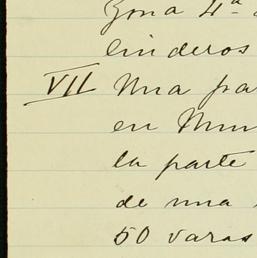 Zona 4ª
linderos
VII Una pa
en Mun
la parte
de una
50 varas